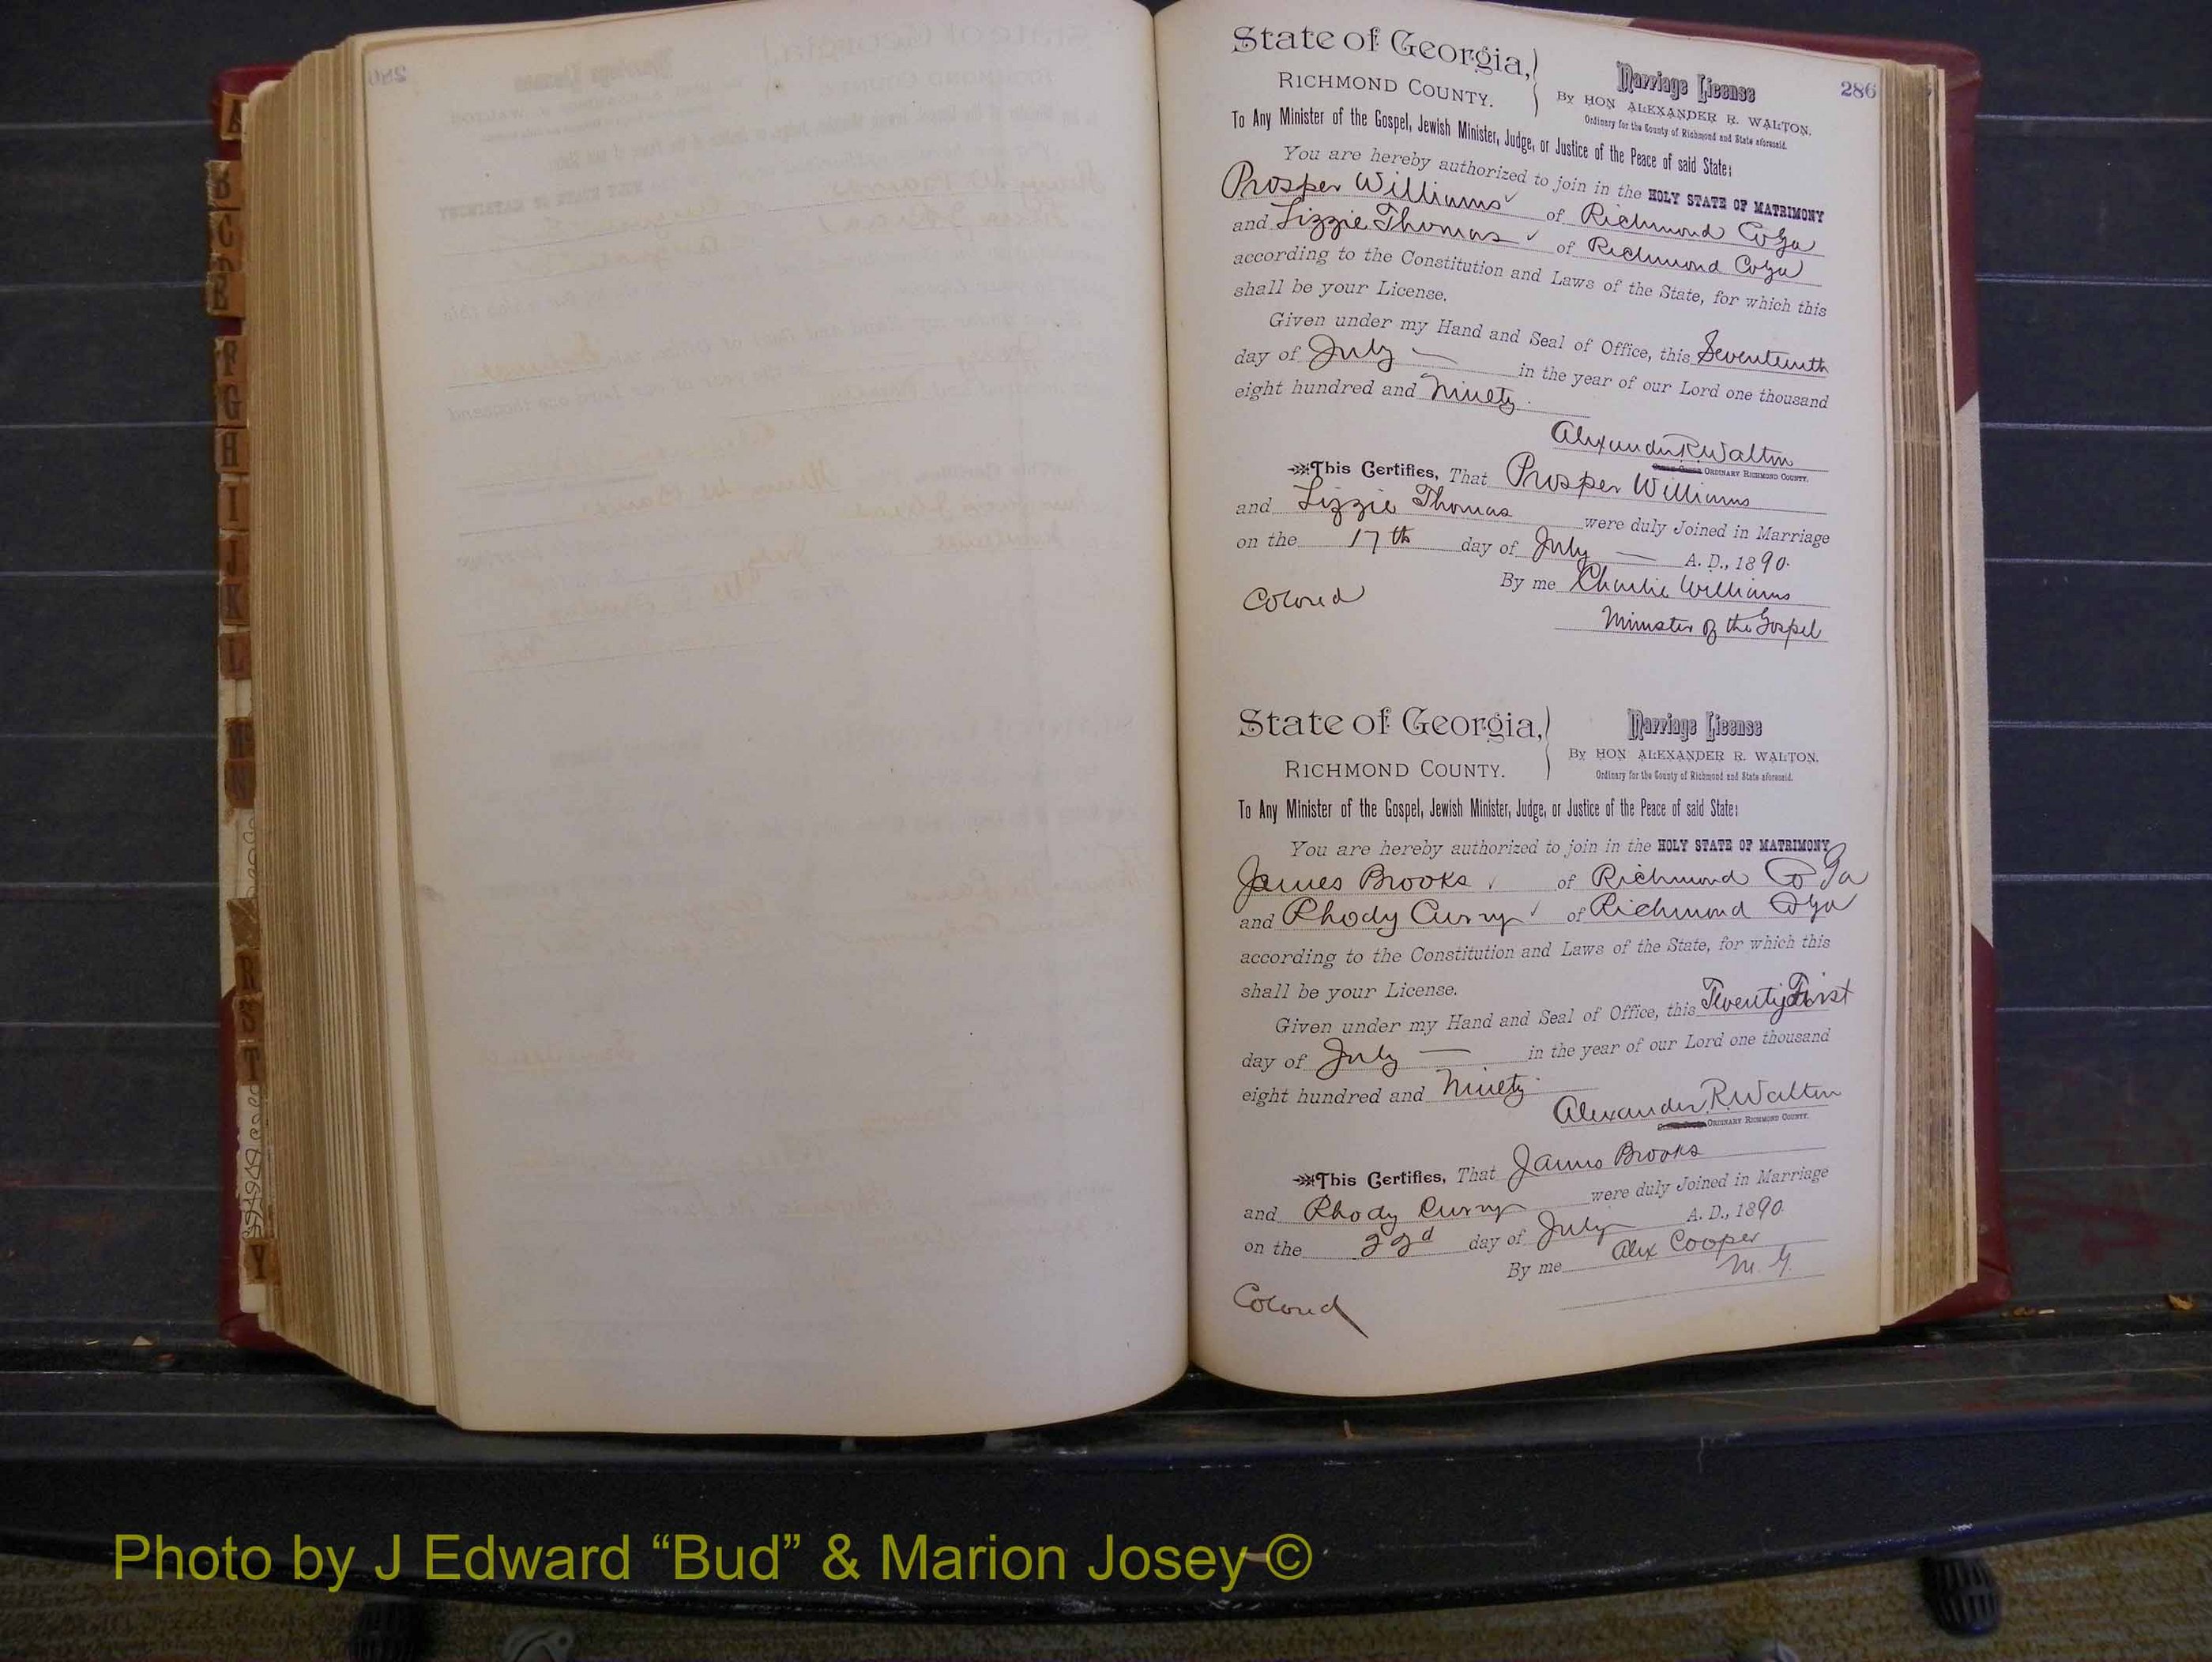 286
State of Georgia,
RICHMOND COUNTY.
Marriage License
By HON ALEXANDER R. WALTON.
Ordinary for the County of Richmond and State aforesaid.
To Any Minister of the Gospel, Jewish Minister, Judge, or Justice of the Peace of said State:
You are hereby authorized to join in the HOLY STATE OF MATRIMONY
Prosper Williams of Richmond Co Ga
and Lizzie Thomas of Richmond Co Ga
according to the Constitution and Laws of the State, for which this
shall be your License.
Given under my Hand and Seal of Office, this Seventeenth
day of July in the year of our Lord one thousand
eight hundred and Ninety.
Alexander R. Walton
ORDINARY RICHMOND COUNTY.
This Certifies, That Prosper Williams
and Lizzie Thomas were duly Joined in Marriage
on the 17th day of July A. D., 1890.
By me Charlie Williams
Colored
Minister of the Gospel
State of Georgia,
RICHMOND COUNTY.
Marriage License
By HON ALEXANDER R. WALTON.
Ordinary for the County of Richmond and State aforesaid.
To Any Minister of the Gospel, Jewish Minister, Judge, or Justice of the Peace of said State:
You are hereby authorized to join in the HOLY STATE OF MATRIMONY
James Brooks of Richmond Co Ga
and Rhody Curry of Richmond Co Ga
according to the Constitution and Laws of the State, for which this
shall be your License.
Given under my Hand and Seal of Office, this Twenty First
day of July in the year of our Lord one thousand
eight hundred and Ninety.
Alexander R. Walton
ORDINARY RICHMOND COUNTY.
This Certifies, That James Brooks
and Rhody Curry were duly Joined in Marriage
on the 22d day of July A. D., 1890.
By me Alex Cooper
M. G.
Colored
A
B
C
D
E
F
G
H
I
J
K
L
M
N
R
S
T
Y
Photo by J Edward “Bud” & Marion Josey ©